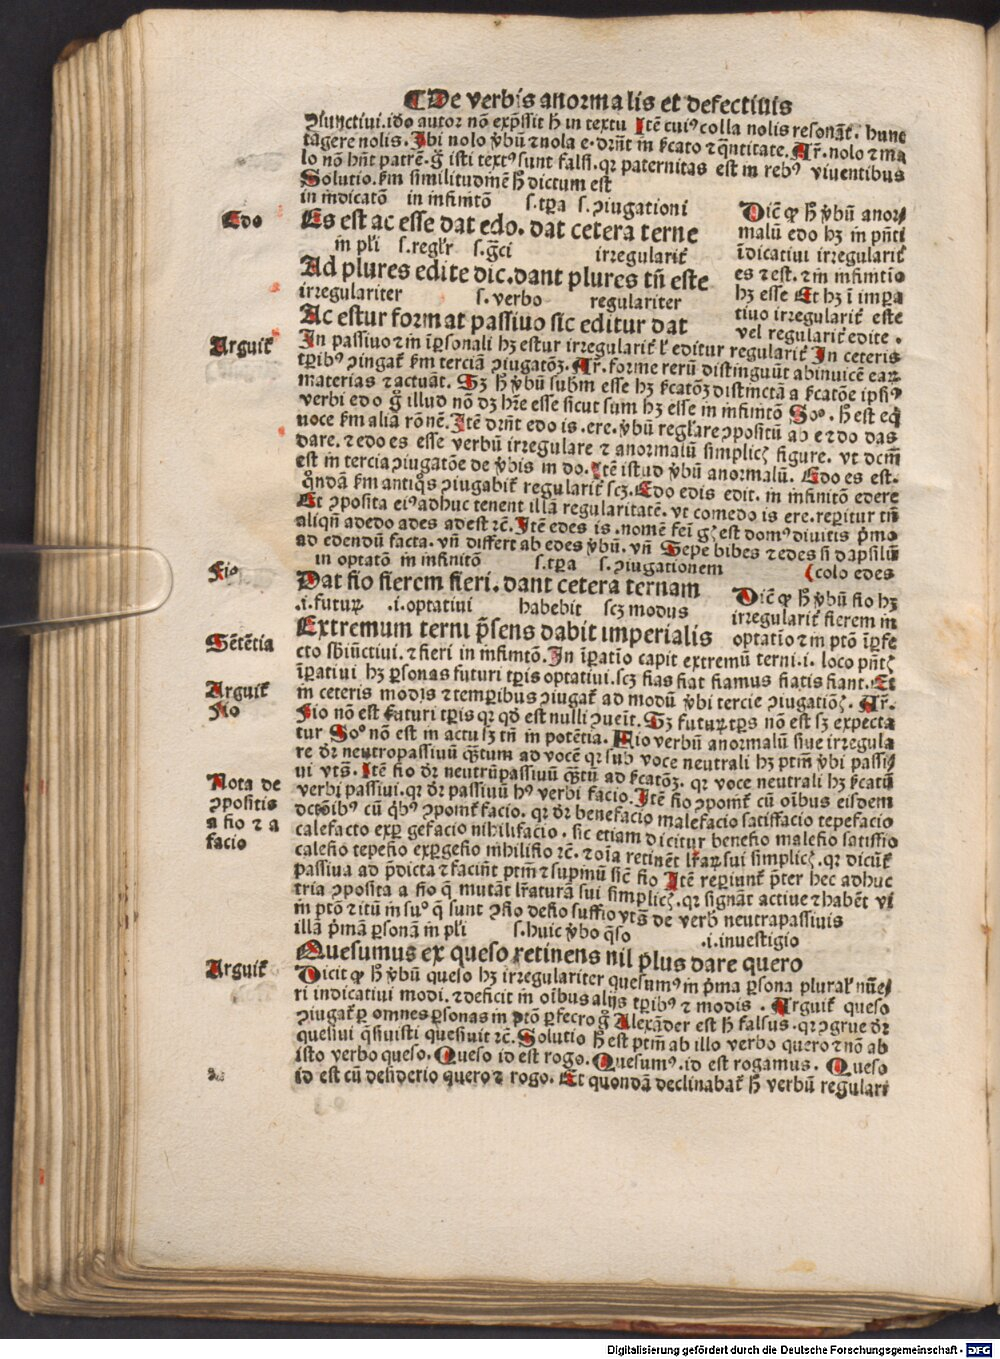 ¶De verbis anormalis et defectiuis
ꝯiunctiui. ido autor nō exp̄ssit ħ in textu Itē cui⁹ colla nolis resonāt. hunc
tāgere nolis. Ibi nolo v̄bū ⁊ nola e. dr̄nt in ſc̄ato ⁊ q̄ntitate. Ar̄. nolo ⁊ ma
lo nō hn̄t patrē. g̊ isti text⁹ sunt falsi. qr paternitas est in reb⁹ viuentibus
Solutio. ſm similitudinē ħ dictum est
in indicatō in infinitō s. tp̄a s. ꝯiugationi
Edo
Es est ac esse dat edo. dat cetera terne
in pl'i s. regl'r s. g̊ci irregularit̄
Ad plures edite dic. dant plures tn̄ este
irregulariter s. verbo regulariter
Ac estur format passiuo sic editur dat
Dic̄ ꝙ ħ v̄bū anor/
malū edo hꝫ in pn̄ti
īdicatiui irregularit̄
es ⁊ est. ⁊ in infinitīo
hꝫ esse Et hꝫ ī impa
tiuo irregularit̄ este
vel regularit̄ edite.
Arguit̄
In passiuo ⁊ in īp̄sonali hꝫ estur irregularit̄ l' editur regularit̄ In ceteris
tp̄ib⁹ ꝯingat̄ ſm terciā ꝯiugatōꝫ. Ar̄. forme rerū distinguūt abinuicē eaꝝ
materias ⁊ actuāt. Sꝫ ħ v̄bū subm esse hꝫ ſc̄atōꝫ distinctā a ſc̄atōe ipsi⁹
verbi edo g̊ illud nō dꝫ hr̄e esse sicut sum hꝫ esse in infinitō So⁰. ħ est eq̄
uoce ſm aliā rōnē. Itē dr̄nt edo is. ere. v̄bū regl'are ꝯpositū ab e ⁊ do das
dare. ⁊ edo es esse verbū irregulare ⁊ anormalū simplicꝭ figure. vt dcm̄
est in tercia ꝯiugatōe de v̄bis in do. Itē istud v̄bū anormalū. Edo es est.
q̊ndā ſm antiq̊s ꝯiugabit̄ regularit̄ scꝫ. Edo edis edit. in infinitō edere
Et ꝯposita ei⁹ adhuc tenent illā regularitatē. vt comedo is ere. repitur tn̄
aliqn̄ adedo ades adest ꝛc̄. Itē edes is. nomē fei̅ gꝭ est dom⁹ diuitis p̄mo
ad edendū facta. vn̄ differt ab edes v̄bū. vn̄ Sepe bibes ⁊ edes si dapsiliū
in optatō in infinitō s. tp̄a s. ꝯiugationem (colo edes
Fio
Dat fio fierem fieri. dant cetera ternam
.i. futuꝝ .i. optatiui habebit scꝫ modus
Sētētia
Extremum terni p̄sens dabit imperialis
Dic̄ ꝙ ħ v̄bū fio hꝫ
irregularit̄ fierem in
optatīo ⁊ in ptō īp̄fe
cto sb̄iūctiui. ⁊ fieri in infinitō. In īp̄atīo capit extremū terni. i. loco pn̄tꝭ
īp̄atiui hꝫ p̄sonas futuri tp̄is optatiui. scꝫ fias fiat fiamus fiatis fiant. Et
Arguit̄
in ceteris modis ⁊ temp̄ibus ꝯiugat̄ ad modū v̄bi tercie ꝯiugatiōꝭ. Ar̄.
Fio
Fio nō est futuri tp̄is qr qd̄ est nulli ꝯuen̄t. Sꝫ futuꝝ tp̄s nō est sꝫ expecta
tur So⁰ nō est in actu sꝫ tn̄ in potētia. Fio verbū anormalū siue irregula
re dr̄ neutropassiuū q̄tum ad vocē qr sub voce neutrali hꝫ ptm̄ v̄bi passi/
ui vts̄. Itē fio dr̄ neutrūpassiuū q̄tū ad ſc̄atōꝫ. qr voce neutrali hꝫ ſc̄atū
Nota de
verbi passiui. qr dr̄ passiuū h⁹ verbi facio. Itē fio ꝯponit̄ cū oībus eisdem
ꝯpositis
dctōib⁹ cū q̊b⁹ ꝯponit̄ facio. qr dr̄ benefacio malefacio satisfacio tepefacio
a fio ⁊ a
calefacto exp̄gefacio nihilifacio. sic etiam dicitur benefio malefio satisfio
facio
calefio tepefio exp̄gefio nihilifio ꝛc̄. ⁊ oīa retinēt lr̄aꝝ sui simplicꝭ. qr dicūt̄
passiua ad p̄dicta ⁊ faciūt ptm̄ ⁊ supinū sic̄ fio Itē repiunt̄ p̄ter hec adhuc
tria ꝯposita a fio q̄ mutāt lr̄aturā sui simplicꝭ. qr signāt actiue ⁊ habēt vi
in ptō ⁊ itū in su⁰ q̄ sunt ꝯfio defio suffio vts̄ de verb̄ neutrapassiuis
illā p̄mā p̄sonā in pl'i s. huic v̄bo q̄so .i. inuestigio
Quesumus ex queso retinens nil plus dare quero
Arguit̄
Dicit ꝙ ħ v̄bū queso hꝫ irregulariter quesum⁹ in p̄ma p̄sona plural' nūe/
ri indicatiui modi. ⁊ deficit in oībus alijs tp̄ib⁹ ⁊ modis. Arguit̄ queso
ꝯiugat̄ p omnes p̄sonas in ptō p̄fecto g̊ Alexāder est ħ falsus. qr ꝯgrue dr̄
quesiui q̄siuisti quesiuit ꝛc̄. Solutio ħ est ptm̄ ab illo verbo quero ⁊ nō ab
isto verbo queso. Queso id est rogo. Quesum⁹. id est rogamus. Queso
id est cū desiderio quero ⁊ rogo. Et quondā declinabat̄ ħ verbū regulari
Digitalisierung gefördert durch die Deutsche Forschungsgemeinschaft - DFG